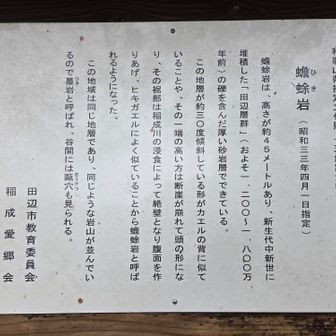 蟾蜍岩（昭和三三年四月一日指定）
ひき
蟾蜍岩は、高さが約45メートルあり、新生代中新世に
堆積した「田辺層群」（およそ一、二〇〇〜一、八〇〇万
年前）の礫を含んだ厚い砂岩層でできている。
この地層が約三〇度傾斜している形がカエルの背に似て
いることや、その一端の高い方は断崖が崩れて頭の形にな
り、その裾部は稲成川の浸食によって絶壁となり腹面を作
りあげ、ヒキガエルによく似ていることから蟾蜍岩と呼ば
れるようになった。
この地域は同じ地層であり、同じような岩山が並んでい
るので墓岩と呼ばれ、谷間には竈穴も見られる。
田辺市教育委員会
稲成愛郷会